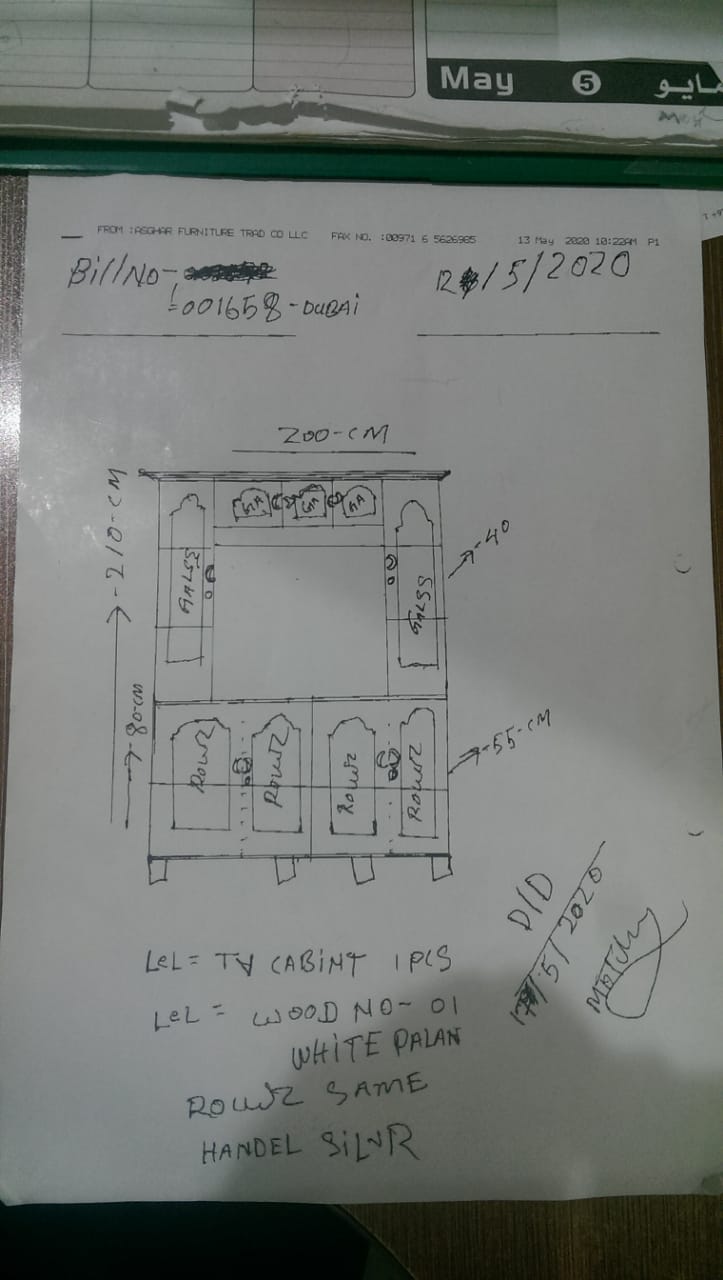 May 5 مايو
FROM :ASGHAR FURNITURE TRAD CO LLC FAX NO. :00971 6 5626985 13 May 2020 10:22AM P1
Bill No-
001658-DUBAI
12/5/2020
200-CM
210-CM
80-CM
GA GA GA
GALSS
GALSS
-40
-55-CM
ROWZ ROWZ ROWZ ROWZ
D/D
17/5/2020
LeL = TV CABiNT 1 PCS
LeL = WOOD NO- 01
WHITE PALAN
ROWZ SAME
HANDEL SiLVR